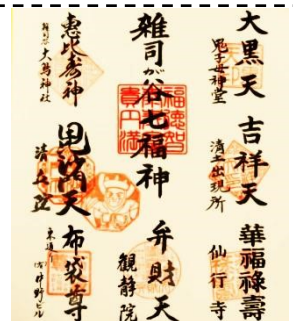 大黒天
鬼子母神堂
吉祥天
清土出現所
華福禄壽
仙行寺
雑司が谷七福神
福徳智
貴円満
弁財天
観静院
恵比寿神
大鳥神社
毘沙門天
清立院
布袋尊
東通り